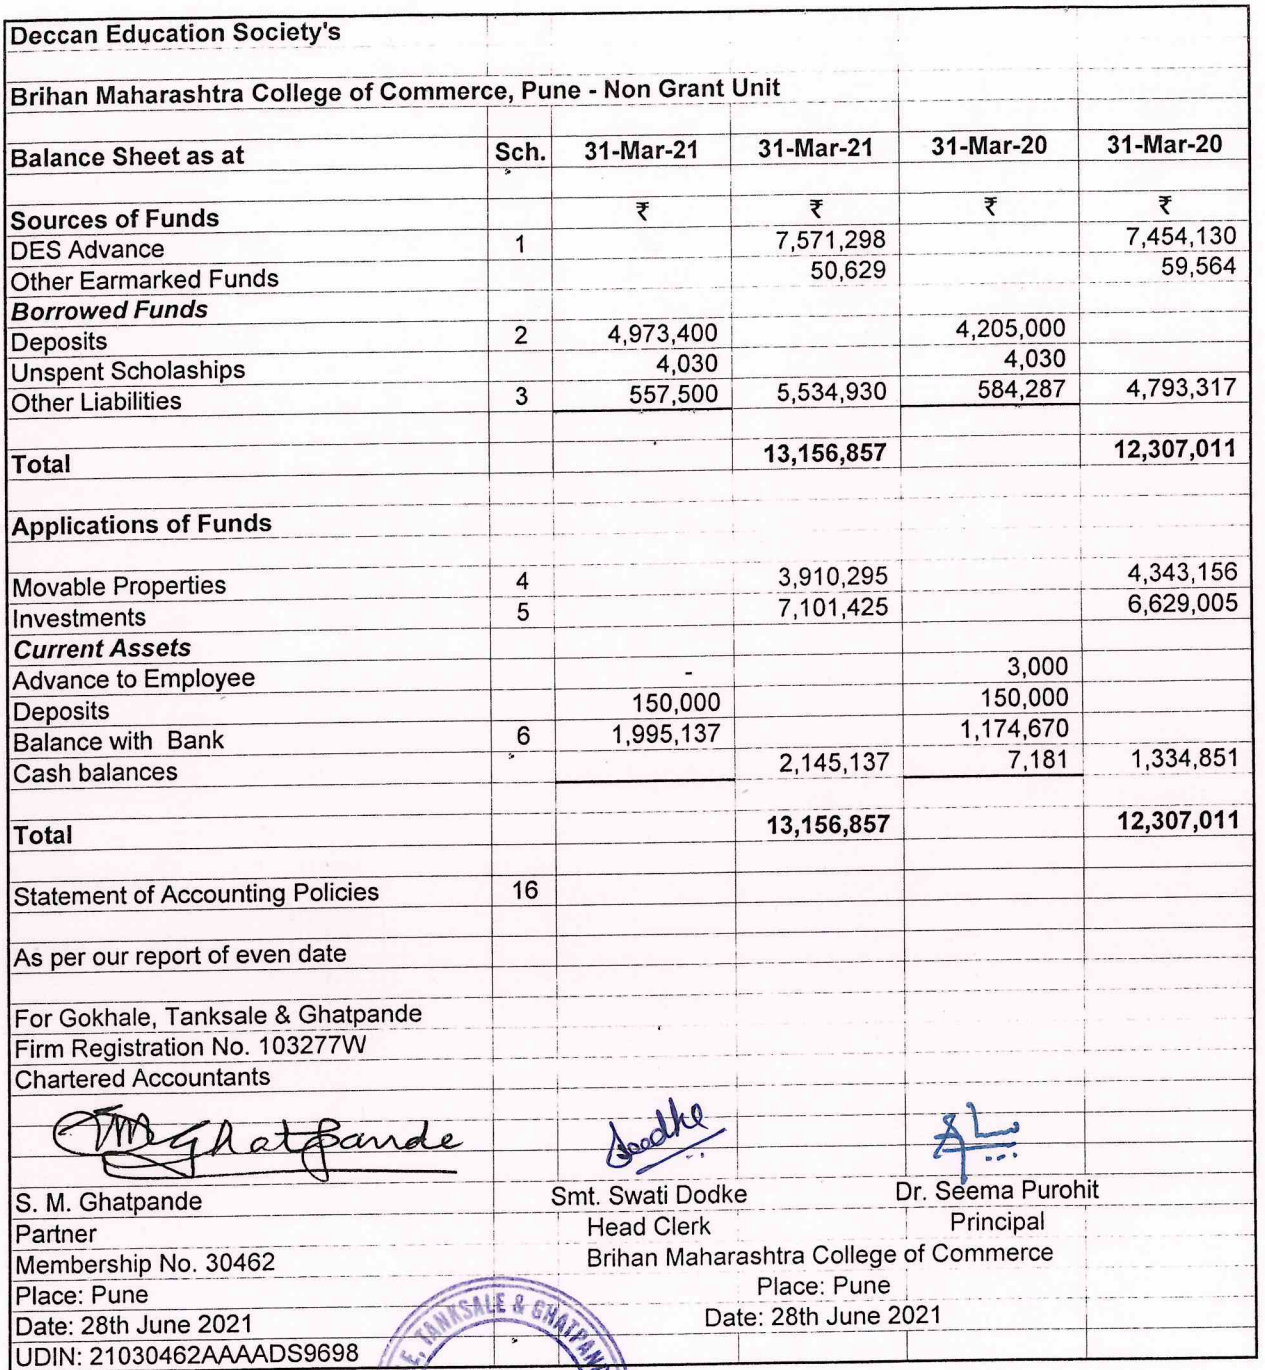 Deccan Education Society's
Brihan Maharashtra College of Commerce, Pune - Non Grant Unit
Balance Sheet as at Sch. 31-Mar-21 31-Mar-21 31-Mar-20 31-Mar-20
Sources of Funds ₹ ₹ ₹ ₹
DES Advance 1 7,571,298 7,454,130
Other Earmarked Funds 50,629 59,564
Borrowed Funds
Deposits 2 4,973,400 4,205,000
Unspent Scholaships 4,030 4,030
Other Liabilities 3 557,500 5,534,930 584,287 4,793,317
Total 13,156,857 12,307,011
Applications of Funds
Movable Properties 4 3,910,295 4,343,156
Investments 5 7,101,425 6,629,005
Current Assets
Advance to Employee - 3,000
Deposits 150,000 150,000
Balance with Bank 6 1,995,137 1,174,670
Cash balances 2,145,137 7,181 1,334,851
Total 13,156,857 12,307,011
Statement of Accounting Policies 16
As per our report of even date
For Gokhale, Tanksale & Ghatpande
Firm Registration No. 103277W
Chartered Accountants
Ghatpande
S. M. Ghatpande Smt. Swati Dodke Dr. Seema Purohit
Partner Head Clerk Principal
Membership No. 30462 Brihan Maharashtra College of Commerce
Place: Pune Place: Pune
Date: 28th June 2021 Date: 28th June 2021
UDIN: 21030462AAAADS9698
TANKSALE &